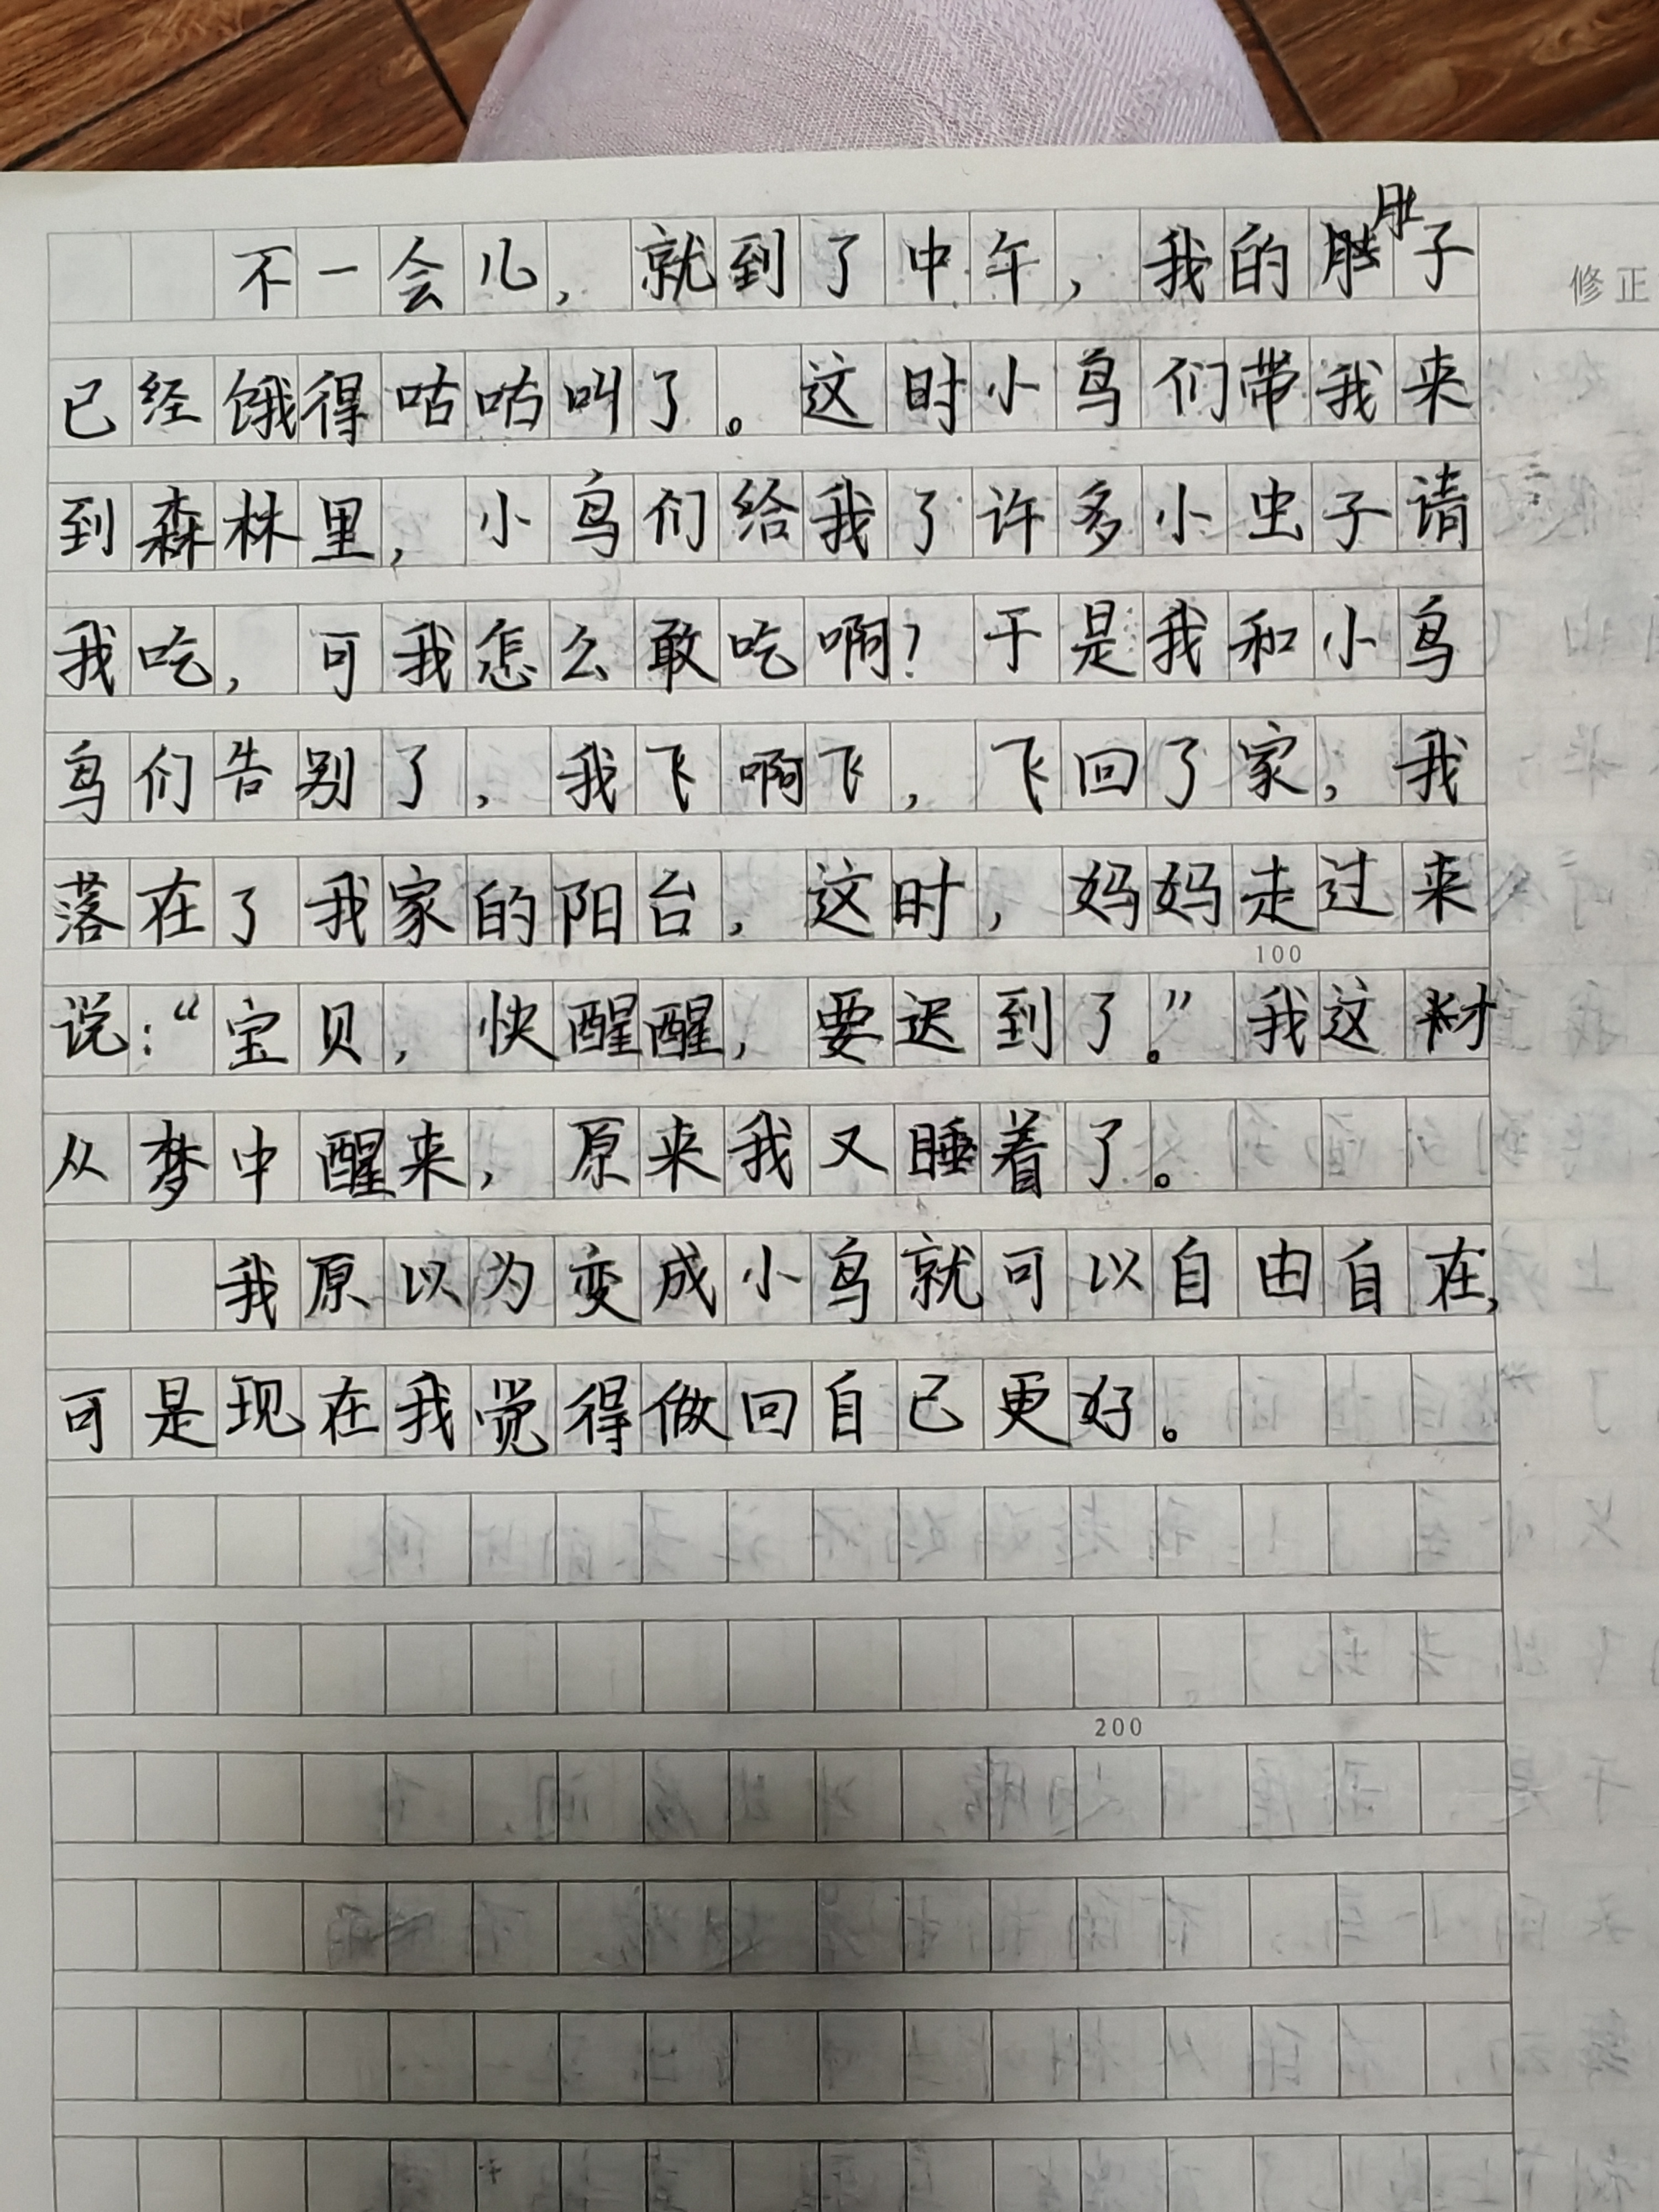 不一会儿，就到了中午，我的肚子
修正
已经饿得咕咕叫了。这时小鸟们带我来
到森林里，小鸟们给我了许多小虫子请
我吃，可我怎么敢吃啊？于是我和小鸟
鸟们告别了，我飞啊飞，飞回了家，我
落在了我家的阳台，这时，妈妈走过来
100
说：“宝贝，快醒醒，要迟到了。”我这才
从梦中醒来，原来我又睡着了。
我原以为变成小鸟就可以自由自在，
可是现在我觉得做回自己更好。
200